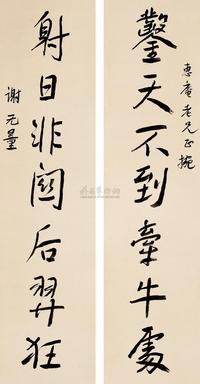 惠庵老兄正
鑿天不到牽牛處
射日非關后羿狂
谢无量